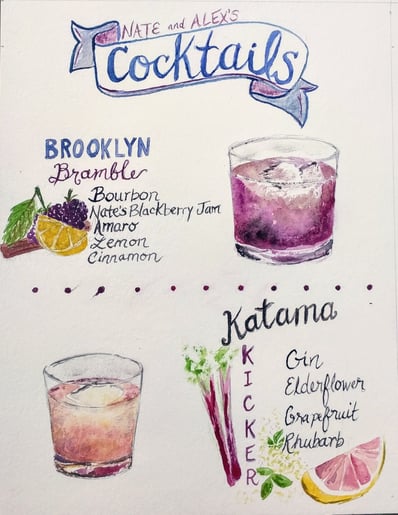 NATE and ALEX'S
Cocktails
BROOKLYN
Bramble
Bourbon
Nate's Blackberry Jam
Amaro
Lemon
Cinnamon
Katama
KICKER
Gin
Elderflower
Grapefruit
Rhubarb